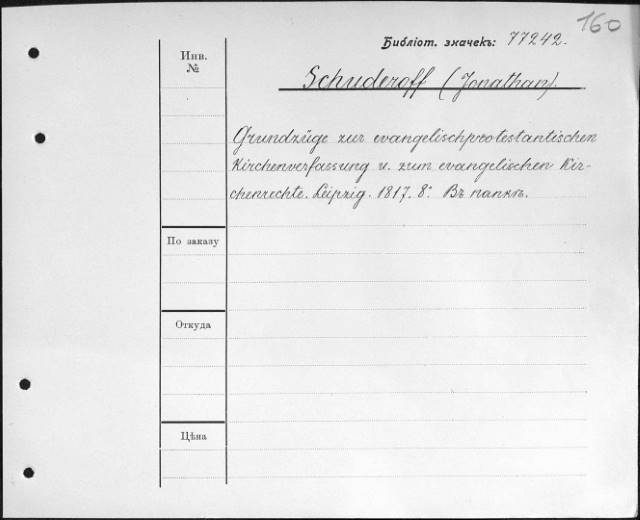 160
Библіот. значекъ: 77242.
Инв.
№
Schuderoff (Jonathan).
Grundzüge zur evangelischprotestantischen
Kirchenverfassung u. zum evangelischen Kir-
chenrechte. Leipzig. 1817. 8°. Въ папкѣ.
По заказу
Откуда
Цѣна